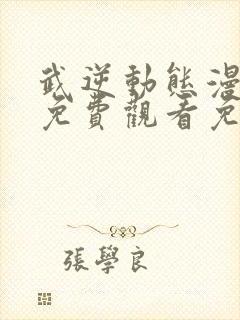 武逆動態漫
免費觀看免
張學良